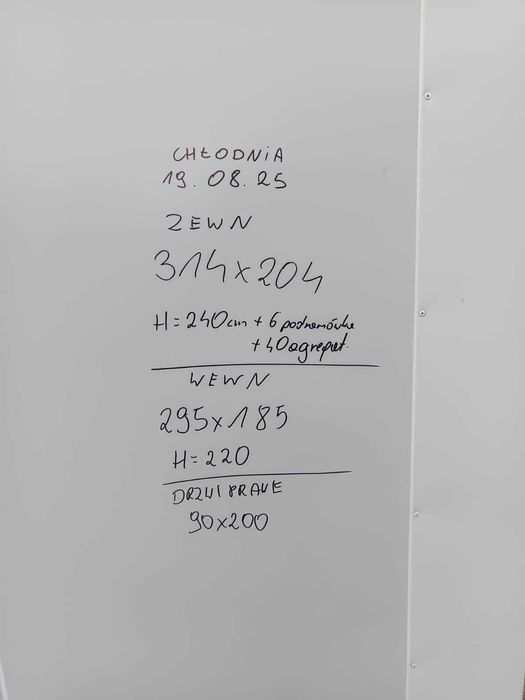 CHŁODNIA
19.08.25
ZEWN
314x204
H=240cm + 6 podramówka
+40 agregat
WEWN
295x185
H=220
DRZWI PRAWE
90x200